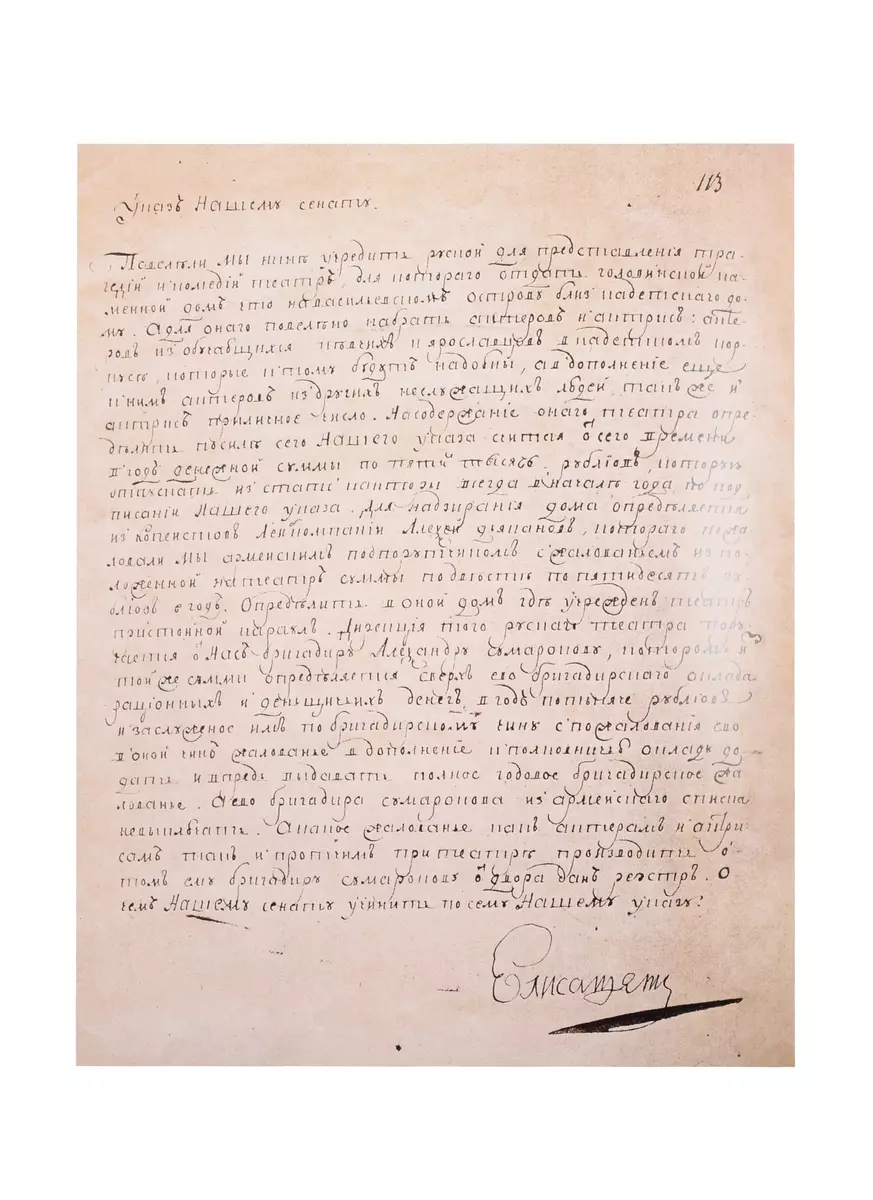 113
Указъ Нашему сенату.
Повелѣли мы нынѣ учредить руской для представленія тра-
гедій и комедій театръ, для котораго отдать головинской ка-
менной домъ что на васильевскомъ острову близъ кадетскаго до-
му. А для онаго повелѣно набрать актеровъ и актрисъ: акте-
ровъ изъ обучающихся пѣвчихъ и ярославцевъ в кадетскомъ кор-
пусѣ, которые к тому будутъ надобны, а в дополненіе еще
к нимъ актеровъ из другихъ неслужащихъ людей также и
актрисъ приличное число. На содержаніе онаго театра опре-
дѣлить по силѣ сего Нашего указа считая от сего времени
в годъ денежной суммы по пяти тысячь рублювъ, которую
отпускать из статс канторы всегда в началѣ года по под-
писаніи Нашего указа. Для надзиранія дома опредѣляется
из копеистовъ Лейбкомпаніи Алексей дьяконовъ, котораго пожа-
ловали мы армейскимъ подпорутчикомъ с жалованьемъ из по-
ложенной на театръ суммы по двѣсти по пятидесятъ ру-
блювъ в годъ. Опредѣлить в оной домъ гдѣ учрежденъ театръ
пристойной караулъ. Дирекція того рускаго театра пору-
чается от Насъ бригадиру Александру Сумарокову, которому из
той же суммы опредѣляется сверхъ ево бригадирскаго оклада
раціонныхъ и деньщичьихъ денегъ в годъ по тысяче рублювъ
и заслуженое имъ по бригадирскому чину с пожалованія ево
в оной чинъ жалованье в дополненіе к полковничью окладу до-
дать и впредь выдавать полное годовое бригадирское жа-
лованье. А ево бригадира сумарокова из армейскаго списка
не выключать. А какое жалованье какъ актерамъ и актри-
самъ такъ и протчимъ при театрѣ производить о
томъ ему бригадиру сумарокову от двора данъ реэстръ. О
чемъ Нашему сенату учинить по сему Нашему указу.
Елисаветъ